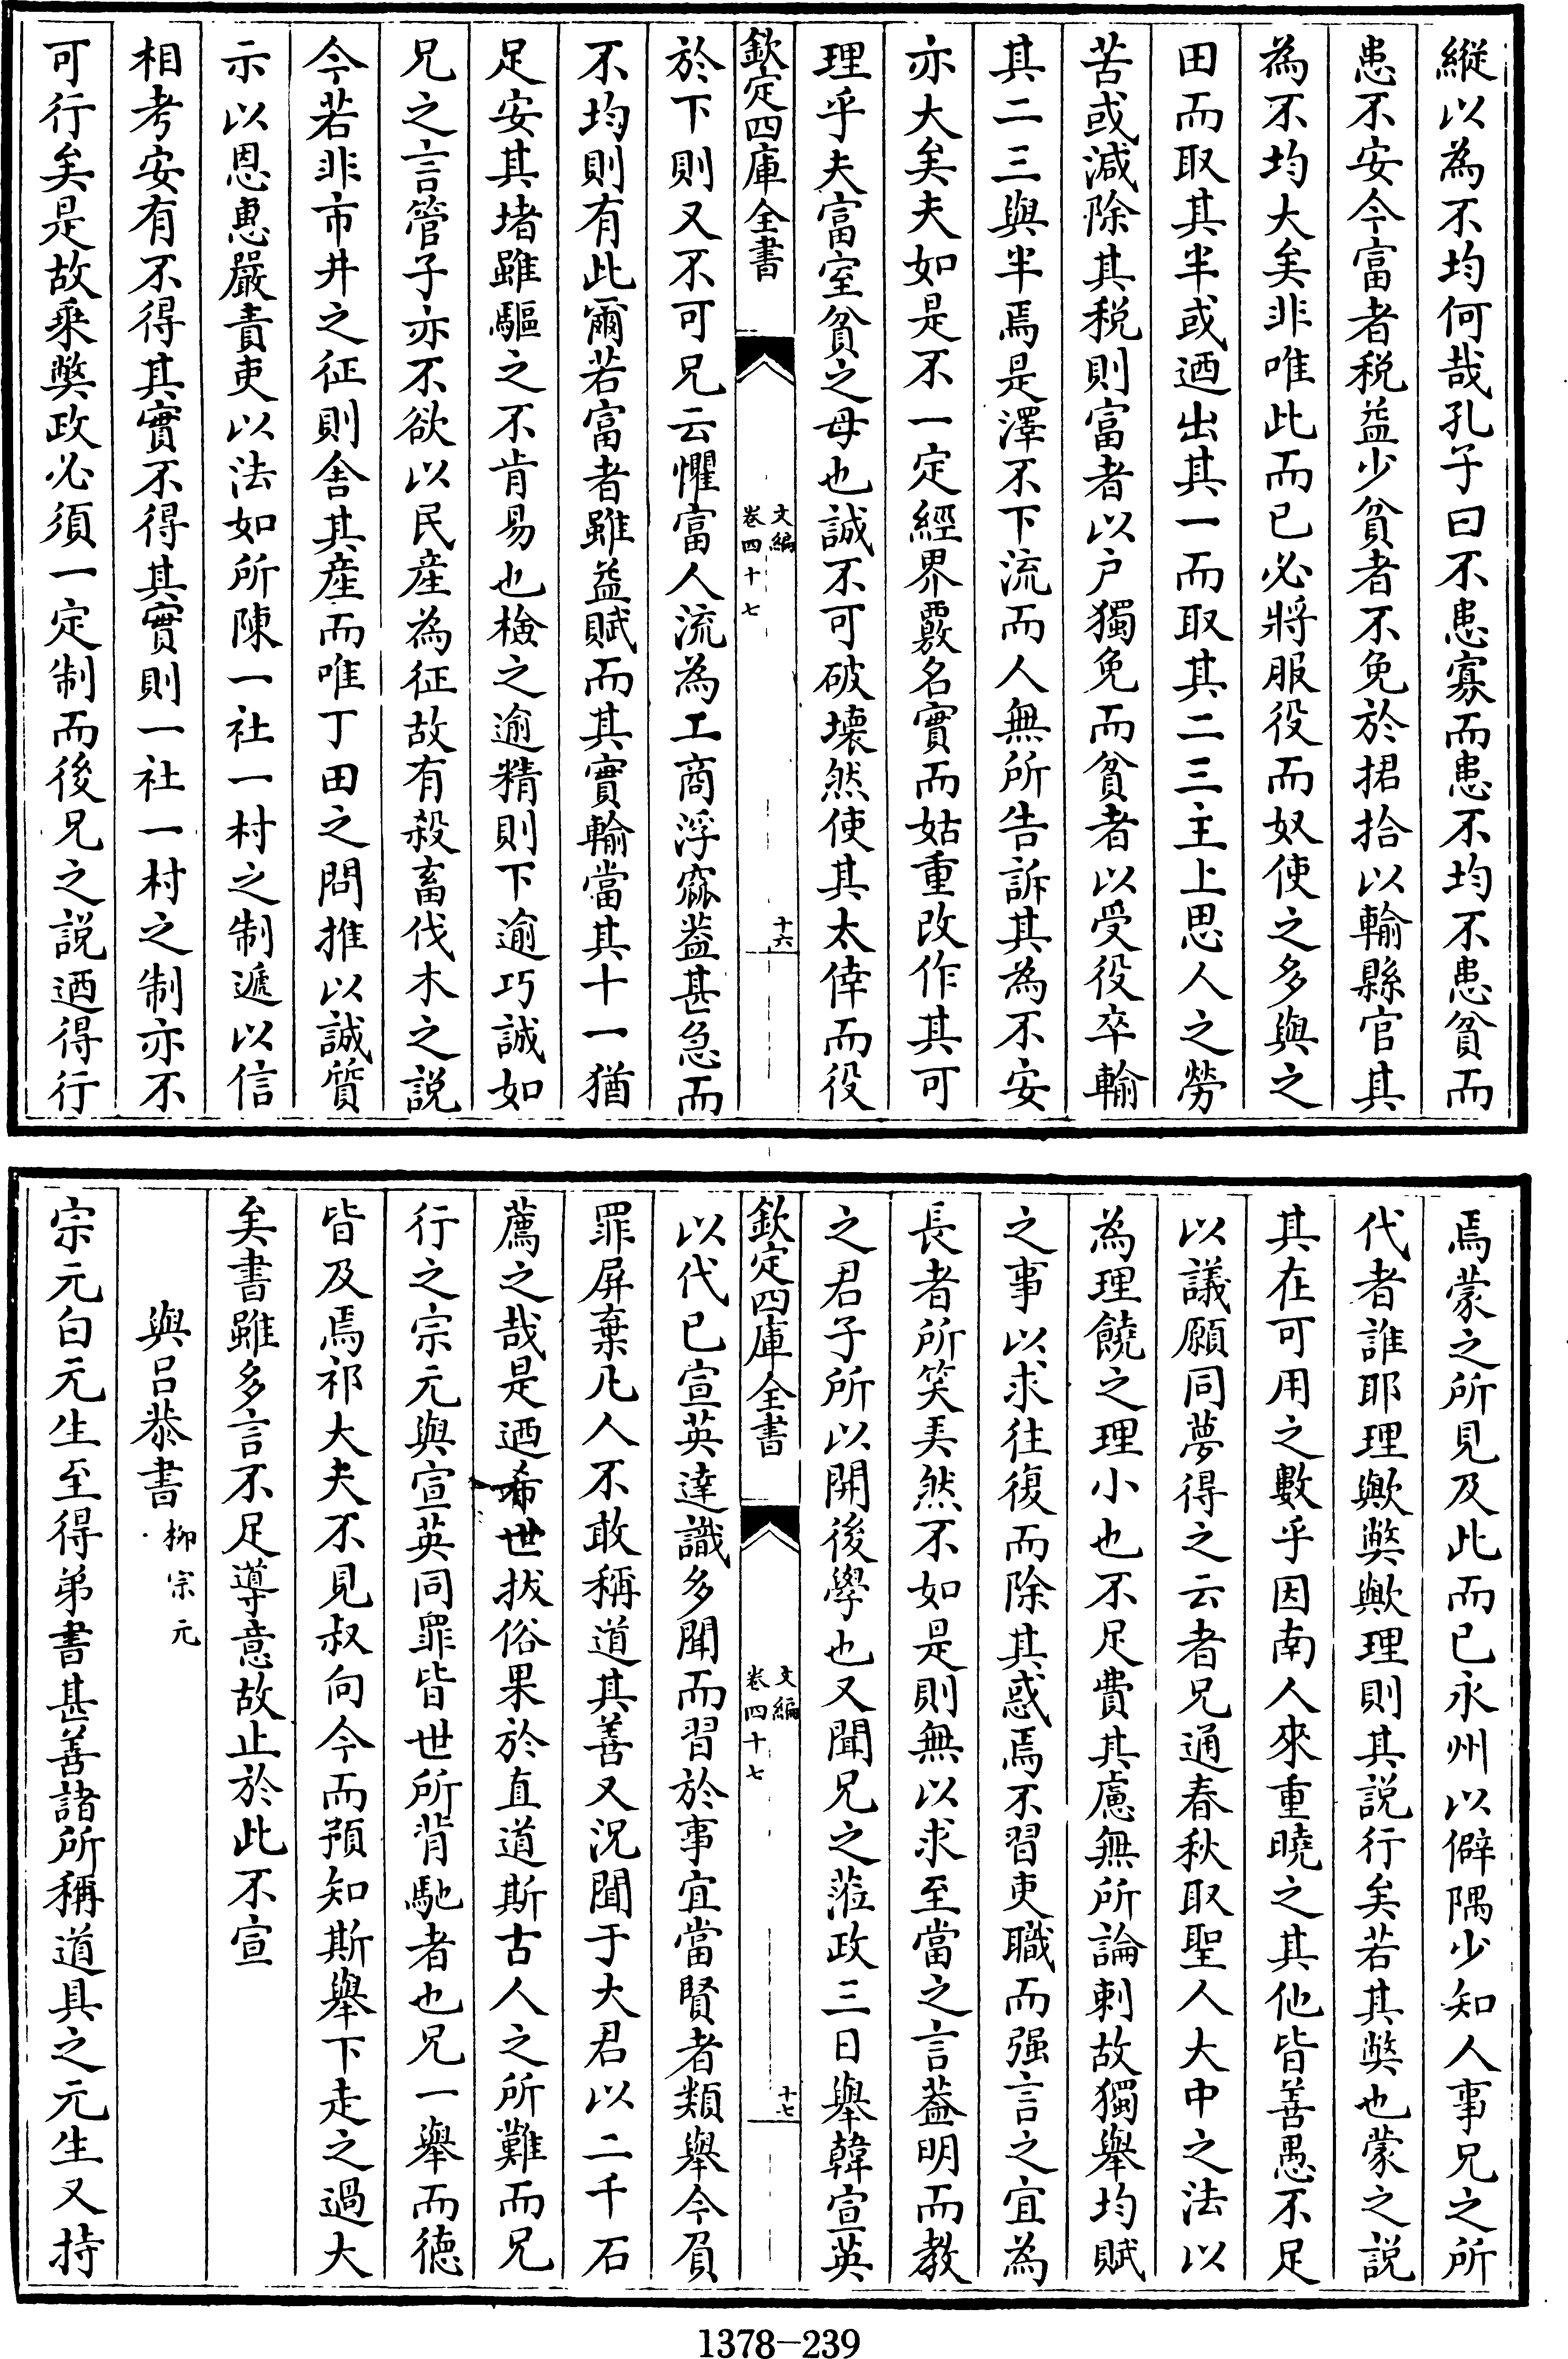 縱以為不均何哉孔子曰不患寡而患不均不患貧而
患不安今富者税益少貧者不免於捃拾以輸縣官其
為不均大矣非唯此而已必將服役而奴使之多與之
田而取其半或迺出其一而取其二三主上思人之勞
苦或減除其税則富者以户獨免而貧者以受役卒輸
其二三與半焉是澤不下流而人無所告訴其為不安
亦大矣夫如是不一定經界覈名實而姑重改作其可
理乎夫富室貧之母也誠不可破壊然使其太倖而役
欽定四庫全書
文編
卷四十七
十六
於下則又不可兄云懼富人流為工商浮窳葢甚急而
不均則有此爾若富者雖益賦而其實輸當其十一猶
足安其堵雖驅之不肯易也檢之逾精則下逾巧誠如
兄之言管子亦不欲以民産為征故有殺畜伐木之説
今若非市井之征則舎其産而唯丁田之問推以誠質
示以恩惠嚴責吏以法如所陳一社一村之制遞以信
相考安有不得其實不得其實則一社一村之制亦不
可行矣是故乗弊政必須一定制而後兄之説迺得行
焉蒙之所見及此而已永州以僻隅少知人事兄之所
代者誰耶理歟弊歟理則其説行矣若其弊也蒙之説
其在可用之數乎因南人來重曉之其他皆善愚不足
以議願同夢得之云者兄通春秋取聖人大中之法以
為理饒之理小也不足費其慮無所論刺故獨舉均賦
之事以求往復而除其惑焉不習吏職而强言之宜為
長者所笑弄然不如是則無以求至當之言葢明而教
之君子所以開後學也又聞兄之蒞政三日舉韓宣英
欽定四庫全書
文編
卷四十七
十七
以代已宣英達識多聞而習於事宜當賢者類舉今負
罪屏棄凡人不敢稱道其善又況聞于大君以二千石
薦之哉是迺希世拔俗果於直道斯古人之所難而兄
行之宗元與宣英同罪皆世所背馳者也兄一舉而徳
皆及焉祁大夫不見叔向今而預知斯舉下走之過大
矣書雖多言不足導意故止於此不宣
與呂恭書 柳宗元
宗元白元生至得弟書甚善諸所稱道具之元生又持
1378-239